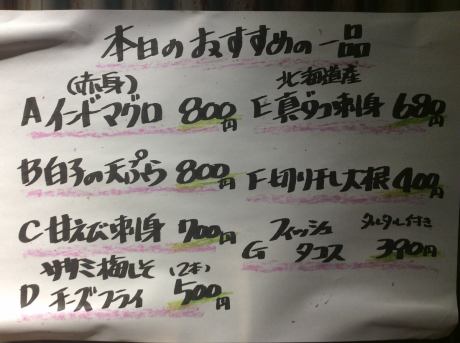 本日のおすすめの一品
(赤身)
Aインドマグロ 800円
B白子の天ぷら 800円
C甘えび刺身 700円
ササミ梅しそ (2本)
D チーズフライ 500円
北海道産
E真ダコ刺身 680円
F切り干し大根 400円
フィッシュ タルタル付き
G タコス 390円